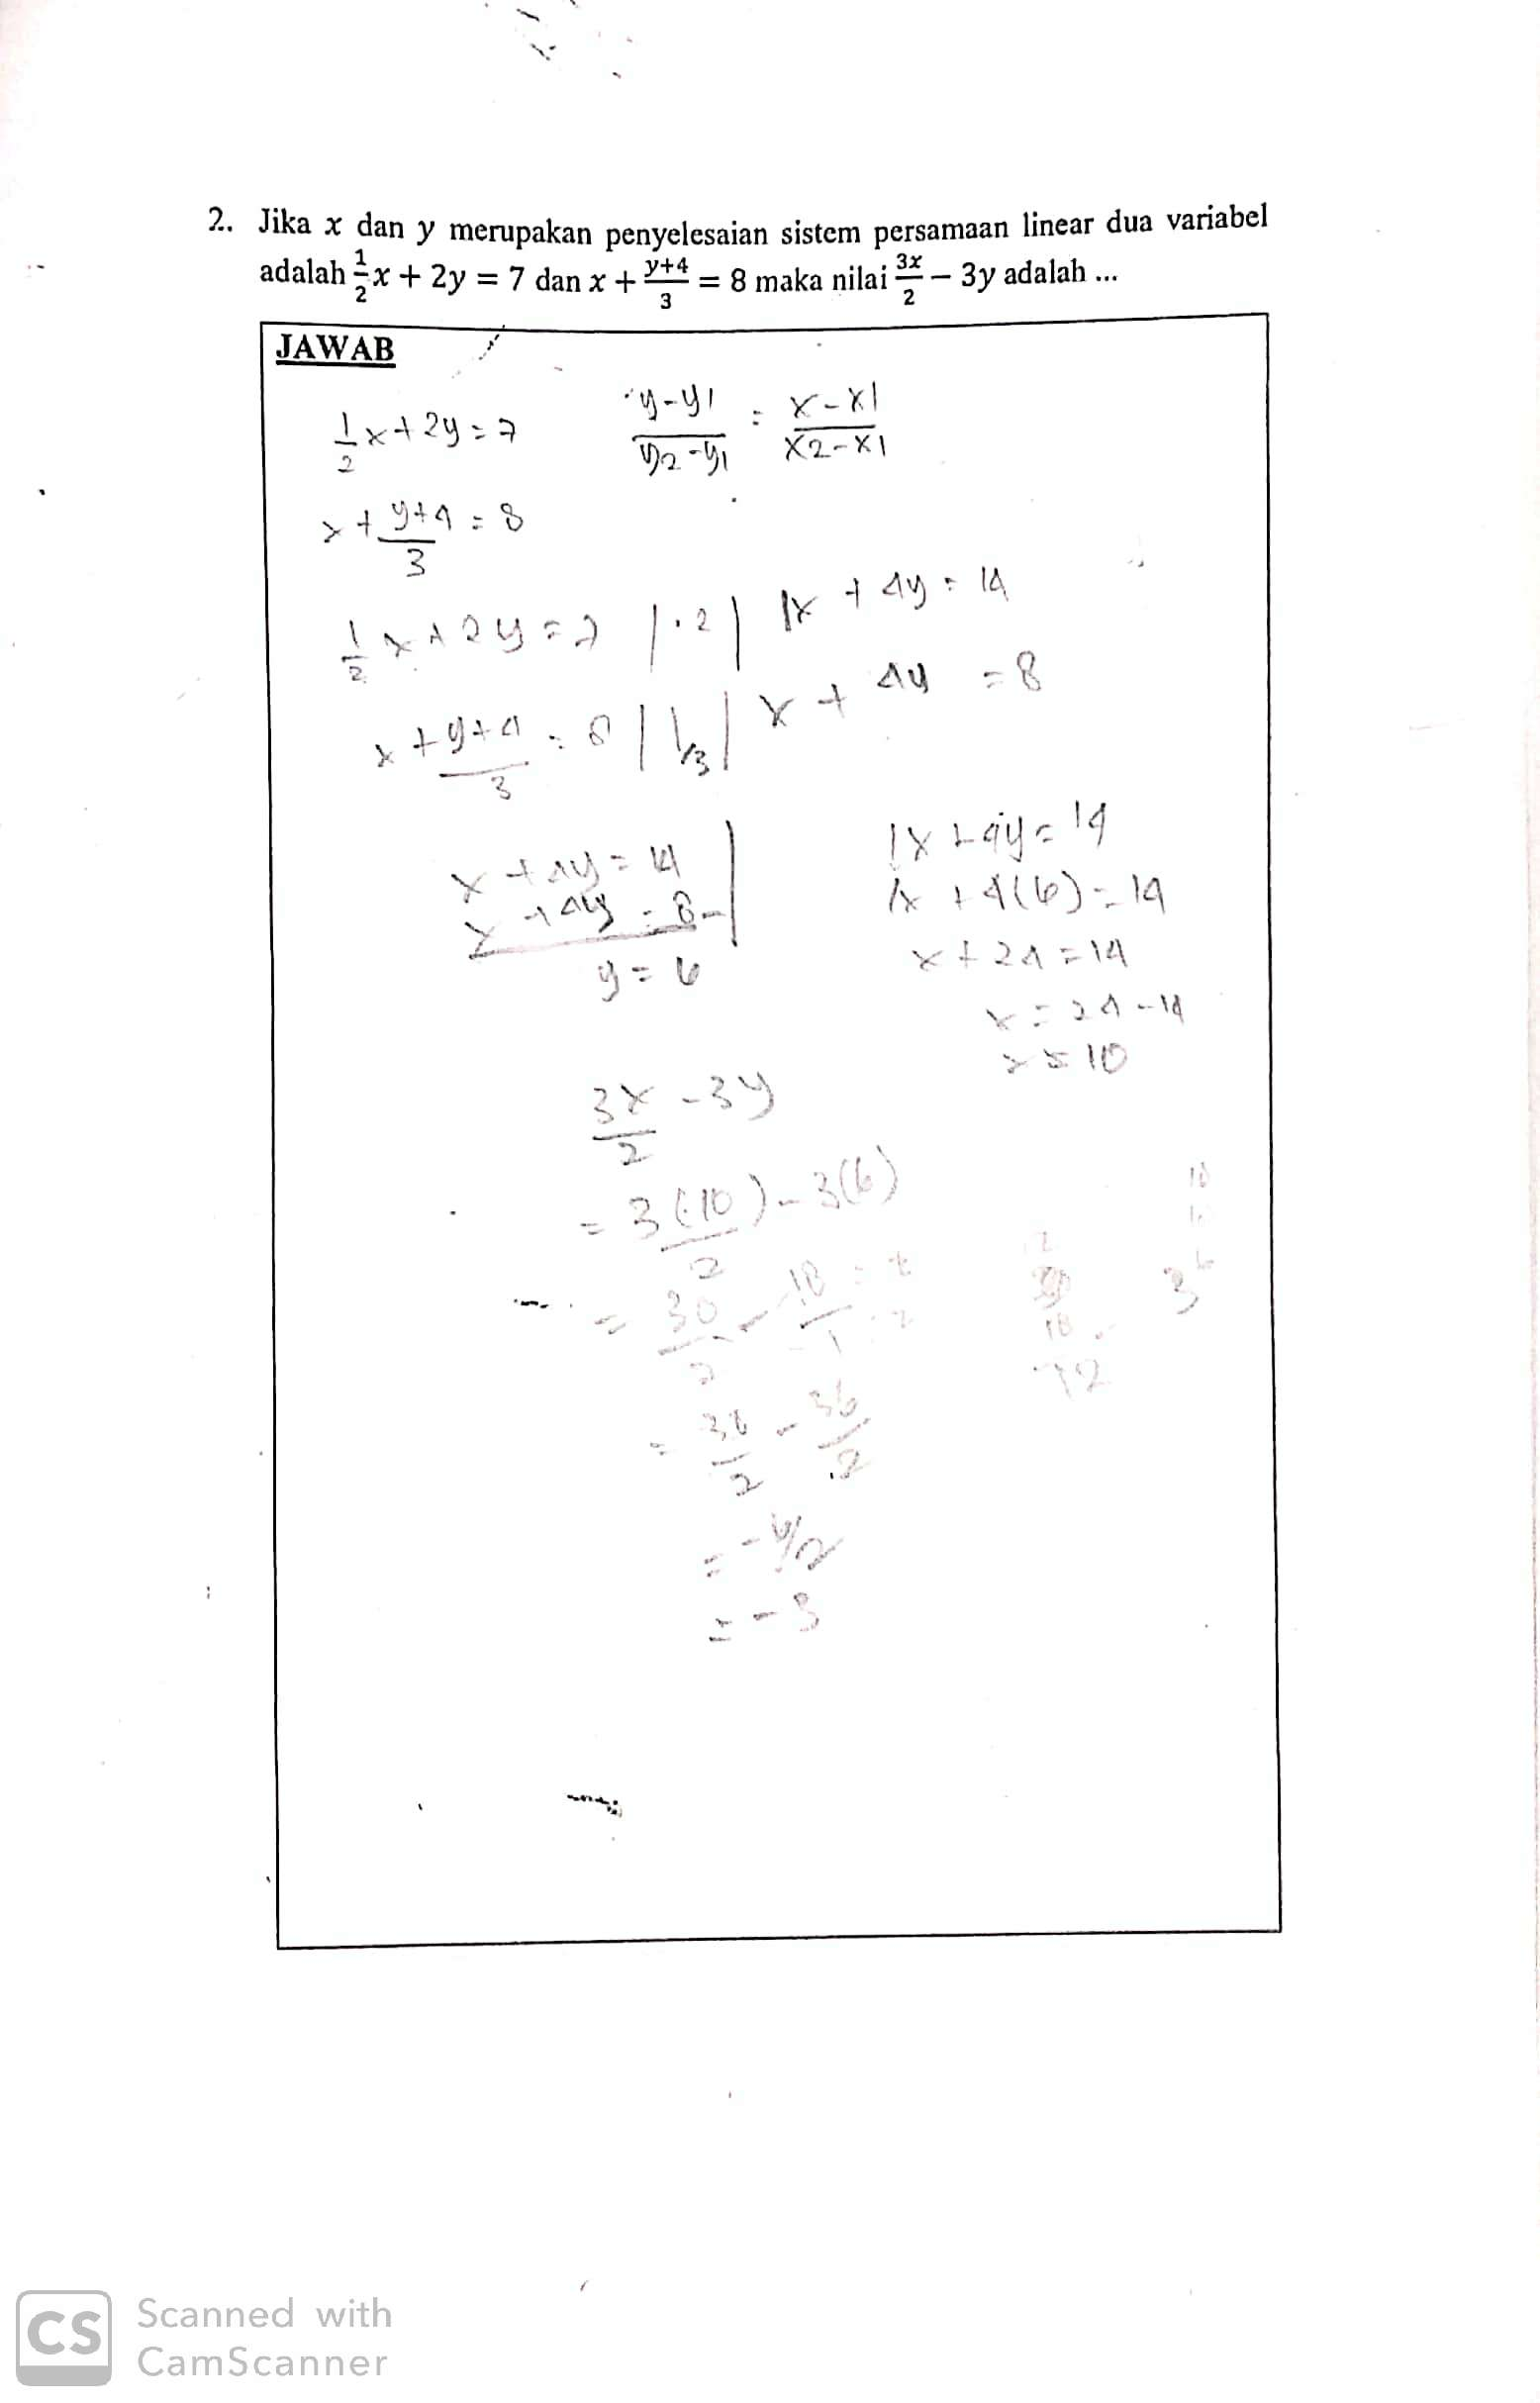 2. Jika x dan y merupakan penyelesaian sistem persamaan linear dua variabel
adalah 1/2 x + 2y = 7 dan x + (y+4)/3 = 8 maka nilai 3x/2 − 3y adalah ...
JAWAB
1/2 x + 2y = 7
(y-y1)/(y2-y1) = (x-x1)/(x2-x1)
x + (y+4)/3 = 8
1/2 x + 2y = 7 | ·2 | 1x + 4y = 14
x + (y+4)/3 = 8 | 1/3 | x + 4y = 8
x + 4y = 14
x + 4y = 8 -
y = 6
1x + 4y = 14
1x + 4(6) = 14
x + 24 = 14
x = 24 - 14
x = 10
3x/2 - 3y
= 3(10)/2 - 3(6)
= 30/2 - 18/1
= 30/2 - 36/2
= -6/2
= -3
CS
Scanned with
CamScanner